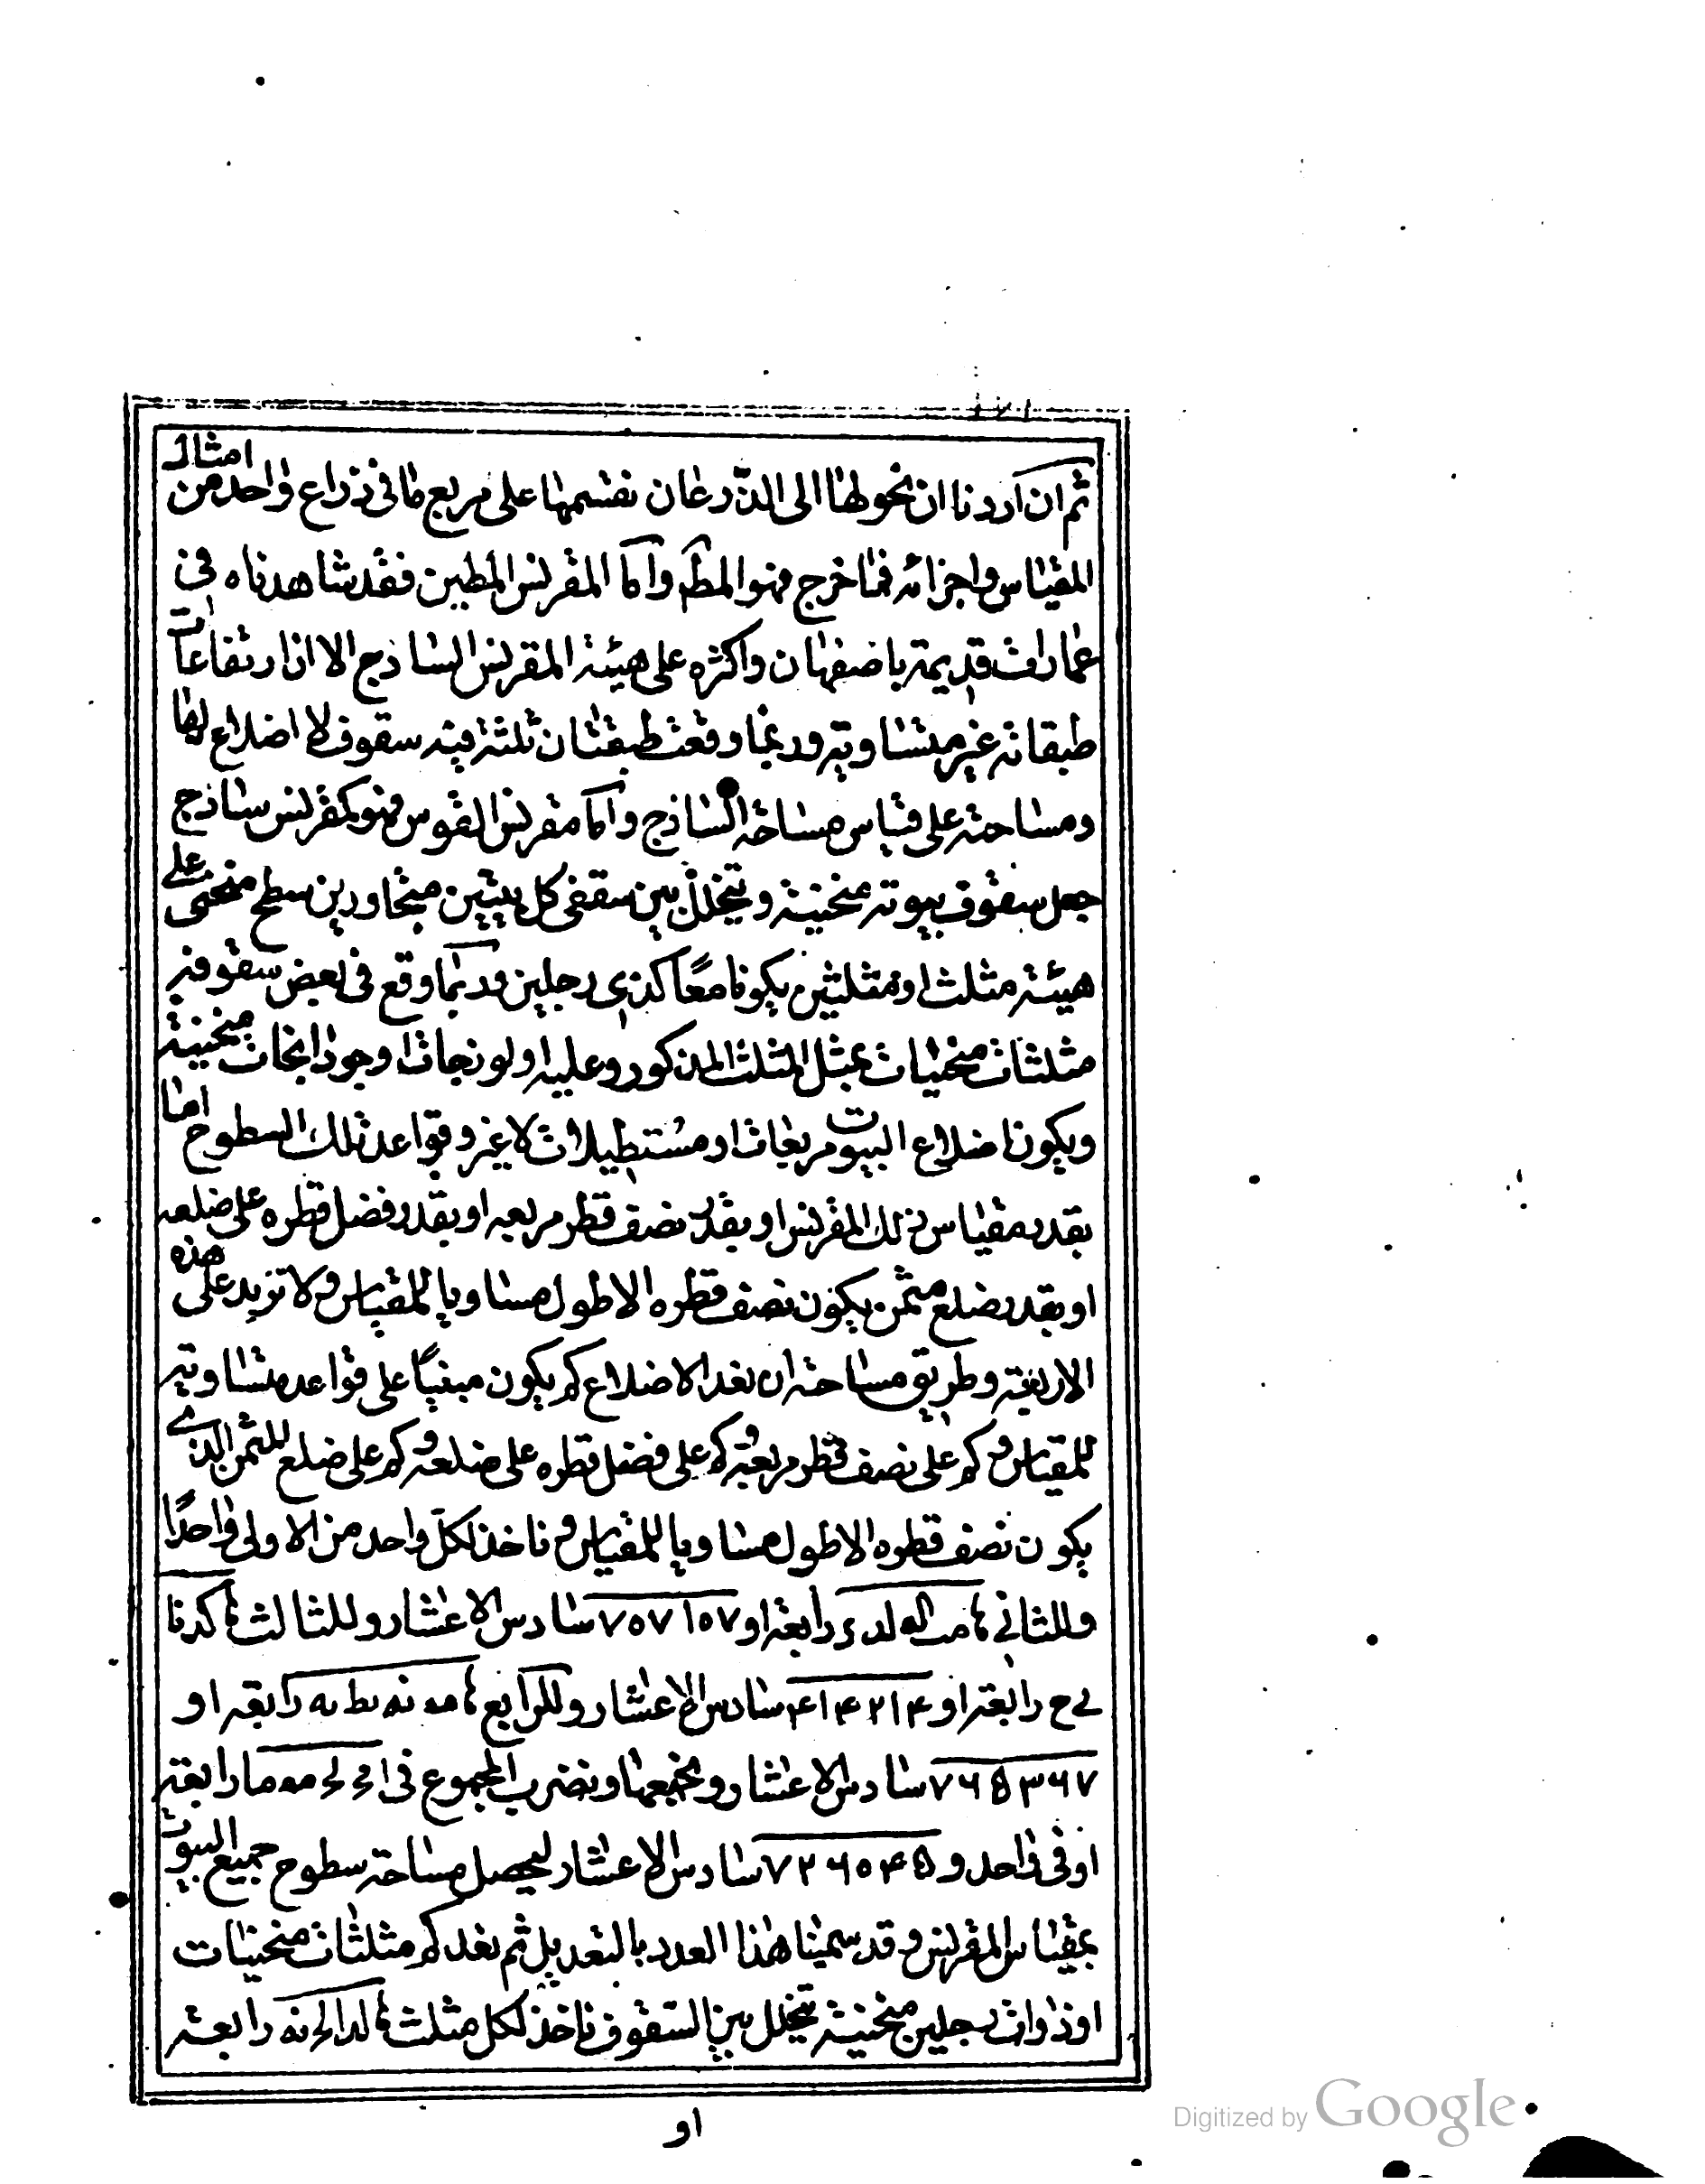 ثم ان اردنا ان نحولها الى الذرعان نقسمها على مربع ما فى ذراع واحد من امثال
المقياس واجزائه فما خرج فهو المط وأما المقرنس المطين فقد شاهدناه فى
عمارات قديمة باصفهان واكثره على هيئة المقرنس الساذج الا ان ارتفاعات
طبقاته غير متساوية وربما وقعت طبقتان ثلثة فيه سقوف لا اضلاع لها
ومساحته على قياس مساحة الساذج وأما مقرنس القوس فهو كمقرنس ساذج
جعل سقوف بيوته منحنية و يتخلل بين سقفى كل بيتين متجاورين سطح منحنى على
هيئة مثلث او مثلثين يكونا معاً كذى رجلين وربما وقع فى بعض سقوفه
مثلثات منحنيات بمثل المثلث المذكور وعليه او لوزجات او جوذانجات منحنية
ويكون اضلاع البيوت مربعات او مستطيلات لا غير وقواعد تلك السطوح اما
بقدر مقياس ذلك المقرنس او بقدر نصف قطر مربعه او بقدر فضل قطره على ضلعه
او بقدر ضلع مثمن يكون نصف قطره الاطول مساويا للمقياس ولا تزيد على هذه
الاربعة وطريق مساحته ان نعد الاضلاع كم يكون مبنياً على قواعد متساوية
للمقياس وكم على نصف قطر مربعه وكم على فضل قطره على ضلعه وكم على ضلع المثمن الذى
يكون نصف قطره الاطول مساويا للمقياس و ناخذ لكل واحد من الاولى واحدًا
وللثانى رابعة او ٧٥٧١٥٧ سادس الاعشار وللثالث
رابعة او ٤١٤٢١٤ سادس الاعشار وللرابع رابعة او
٧٦٥٣٦٧ سادس الاعشار ونجمعها ونضرب المجموع فى رابعة
او فى واحد و ٧٢٦٥٤٥ سادس الاعشار ليحصل مساحة سطوح جميع البيوت
بمقياس المقرنس وقد سمينا هذا العدد بالتعديل ثم نعد كم مثلثات منحنيات
او ذوات رجلين منحنية يتخلل بين السقوف ناخذ لكل مثلث رابعة
او
Digitized by Google